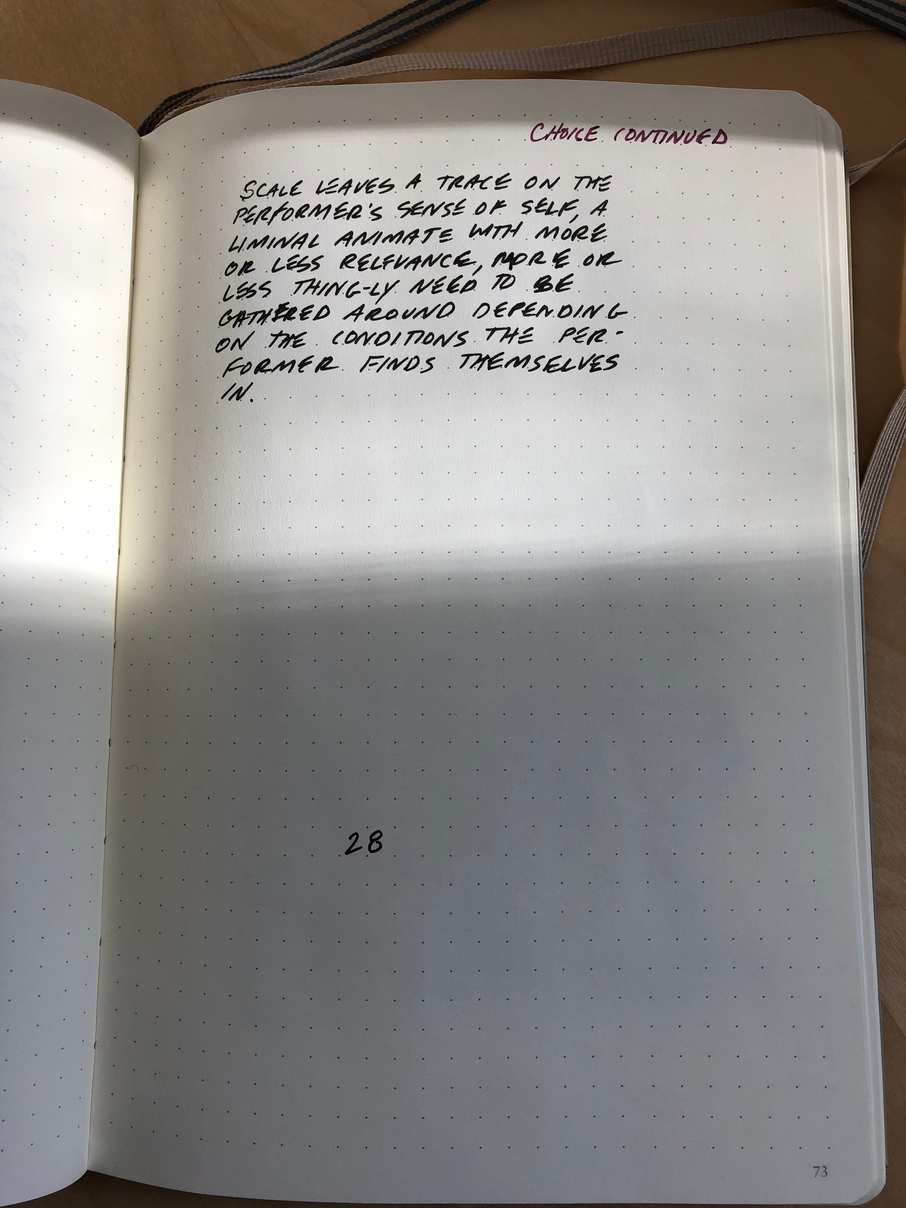 CHOICE CONTINUED
SCALE LEAVES A TRACE ON THE
PERFORMER'S SENSE OF SELF, A
LIMINAL ANIMATE WITH MORE
OR LESS RELEVANCE, MORE OR
LESS THING-LY NEED TO BE
GATHERED AROUND DEPENDING
ON THE CONDITIONS THE PER-
FORMER FINDS THEMSELVES
IN.
28
73